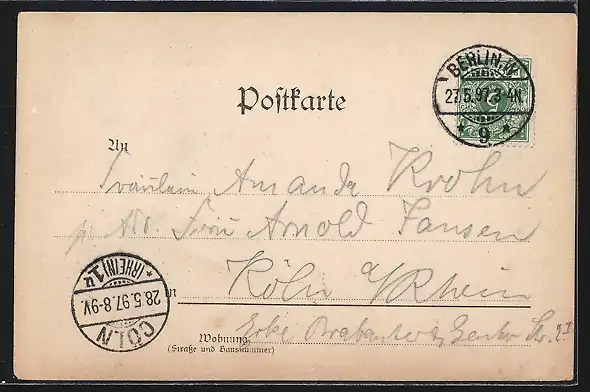 Postkarte
BERLIN.W.
27.5.97.
9
An
Fräulein Amanda Krohn
p. Adr. Frau Arnold Jansen
Köln a/Rhein
in
(RHEIN) 1u
28.5.97.8-9V.
CÖLN
Wohnung
(Straße und Hausnummer)
Ecke Brabanter & Genter Str.